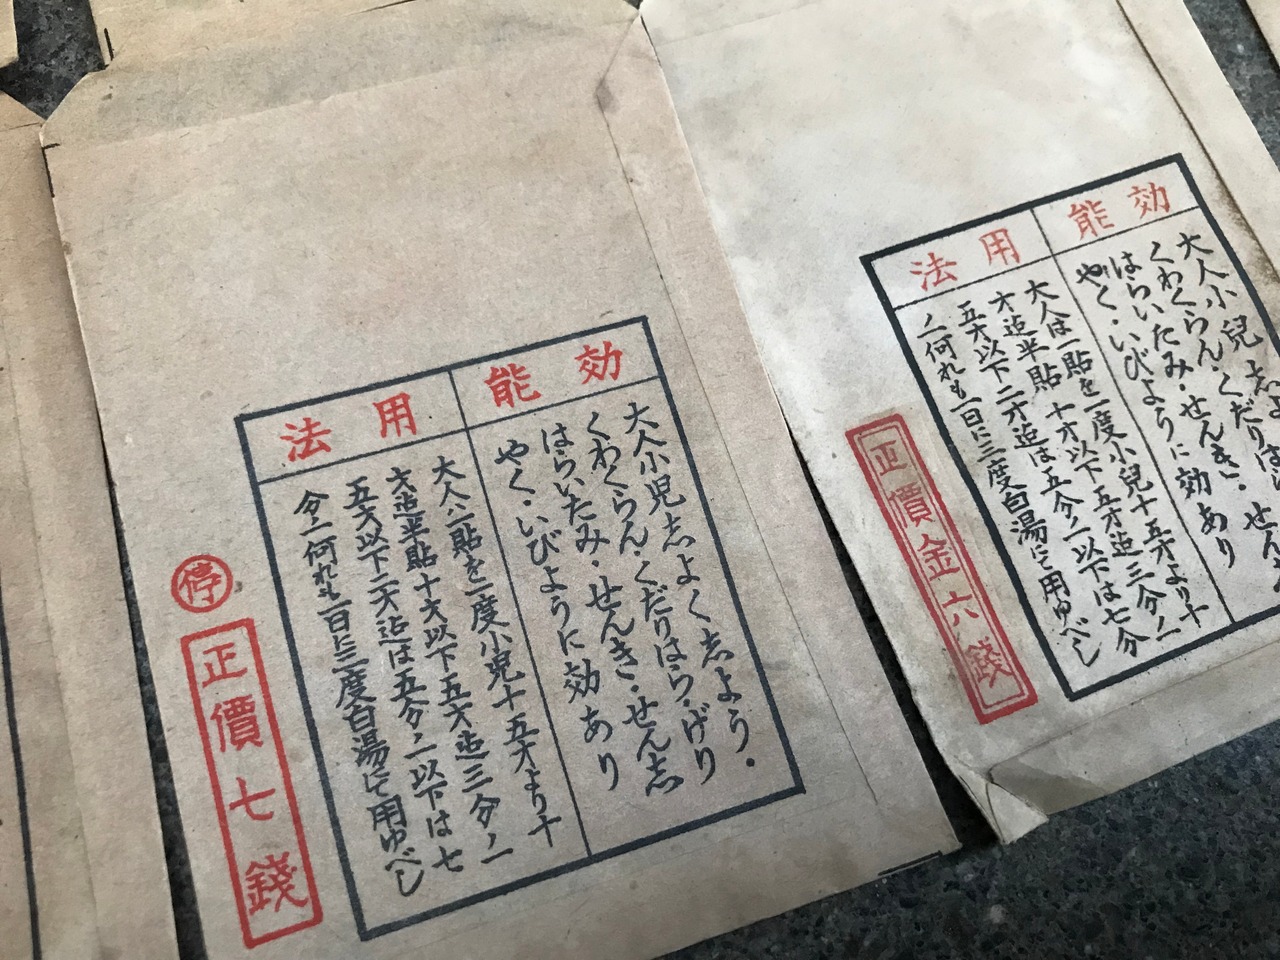 効能
大人小児志よく志よう・
くわくらん・くだりはら・げり
はらいたみ・せんき・せん志
やく・いびように効あり
用法
大人ハ一貼を一度小児十五才より十
才迠半貼十才以下五才迠三分ノ一
五才以下二才迠は五分ノ一以下は七
分ノ一何れも一日に三度白湯にて用ゆべし
停
正價七錢
効能
大人小兒志よ
くわくらん・くだりはら
はらいたみ・せんき・せん
やく・いびように効あり
用法
大人は一貼を一度小兒十五才より十
才迠半貼十才以下五才迠三分ノ一
五才以下二才迠は五分ノ一以下は七分
ノ一何れも一日に三度白湯にて用ゆべし
正價金六錢